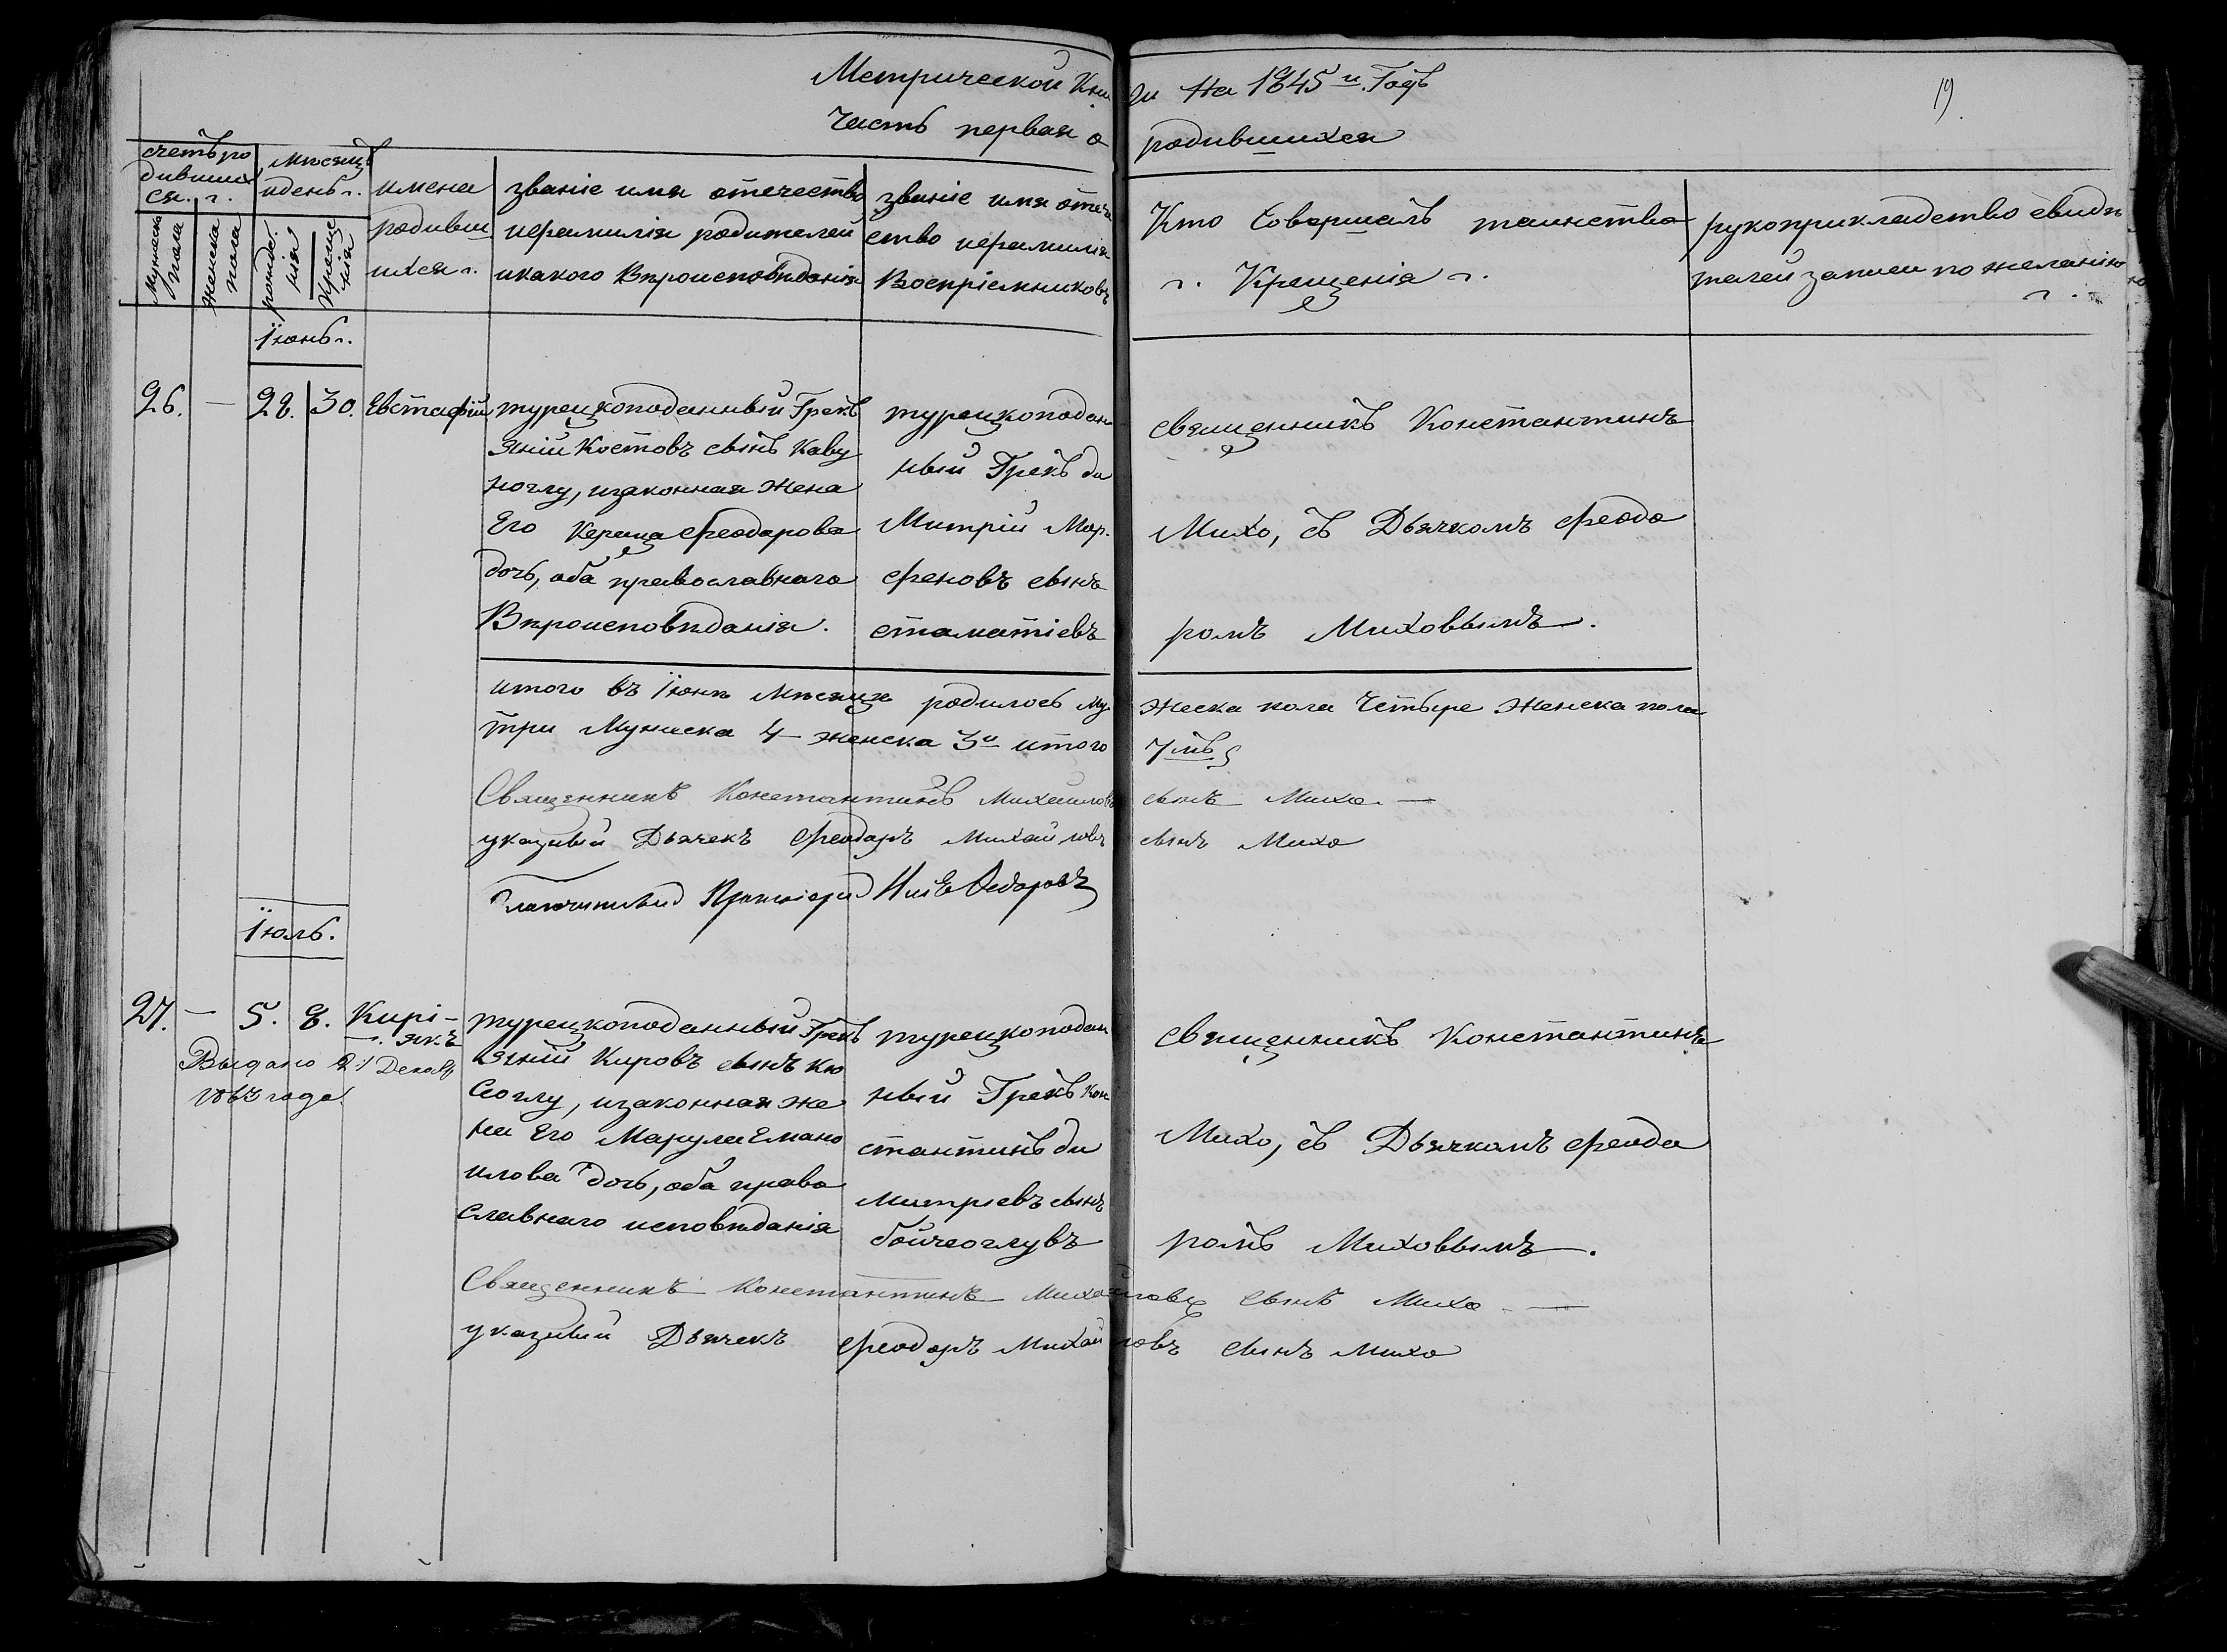 Метрической Книги На 1845й. Годъ
19
Часть первая о родившихся
счетъ ро
дивших
ся.
Мужеска пола
женска пола
Мѣсяцъ
идень
рожде
нія
Креще
нія
имена
родивш
ихся
званіе имя отечество
ифамилія родителей
икакого Вѣроисповѣданія
званіе имя отече
ство ифамилія
Воспріемниковъ
Кто Совершалъ таинство
Крещенія
рукоприкладство свидѣ
телей записи по желанію
Іюнь.
26. — 28. 30. Евстафій
турецкоподанный Грекъ
Яній Костовъ сынъ Каву
ноглу, изаконная жена
Его Кераца Феодорова
дочь, оба православнаго
Вѣроисповѣданія.
турецкоподан
ный Грекъ ди
Митрій Мар.
феновъ сынъ
стаматіевъ
священникъ Константинъ
Михо, съ Дьячкомъ Феодо
ромъ Миховымъ.
итого въ Іюнѣ Мѣсяцѣ родилось му жеска пола Четыре женска пола
три Мужеска 4 женска 3и итого 7мь
Священникъ Константинъ Михайловъ сынъ Михо. —
указный Дьячекъ Феодоръ Михайловъ сынъ Михо
Благочинный Протоіерей Федоровъ
Іюль.
27. — 5. 8. Кирі-
якъ
Выдано 21 Декабр
1863 года.
турецкоподанный Грекъ
Яній Кировъ сынъ Кю
Сюглу, изаконная же
на Его Марула Емано
илова дочь, оба право
славнаго исповѣданія
турецкоподан
ный Грекъ Кон
стантинъ ди
митріевъ сынъ
бойчеоглувъ
священникъ Константинъ
Михо, съ Дьячкомъ Феодо
ромъ Миховымъ.
Священникъ Константинъ Михайловъ сынъ Михо —
указный Дьячекъ Феодоръ Михайловъ сынъ Михо